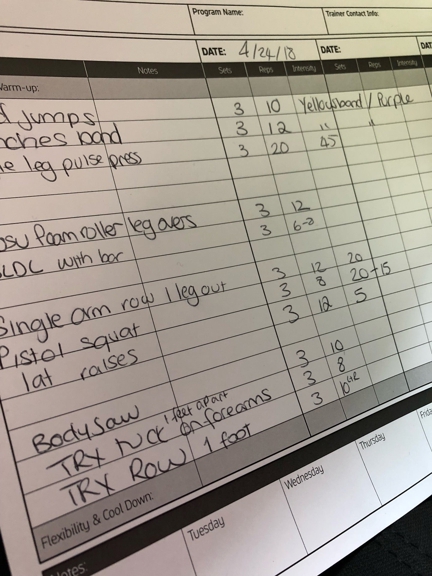 Program Name: Trainer Contact Info:
DATE: 4/24/18 DATE: DAT
Notes Sets Reps Intensity Sets Reps Intensity
Warm-up:
jumps 3 10 Yellowband / Purple
nches band 3 12 " "
e leg pulse press 3 20 45
osu foam roller leg overs 3 12
SLDC with bar 3 6-8
Single arm row 1 leg out 3 12 20
Pistol squat 3 8 20+15
lat raises 3 12 5
Bodysaw 3 10
TRX tuck 1 feet apart on forearms 3 8
TRX ROW 1 foot 3 10
Flexibility & Cool Down:
Notes: Tuesday Wednesday Thursday Frida